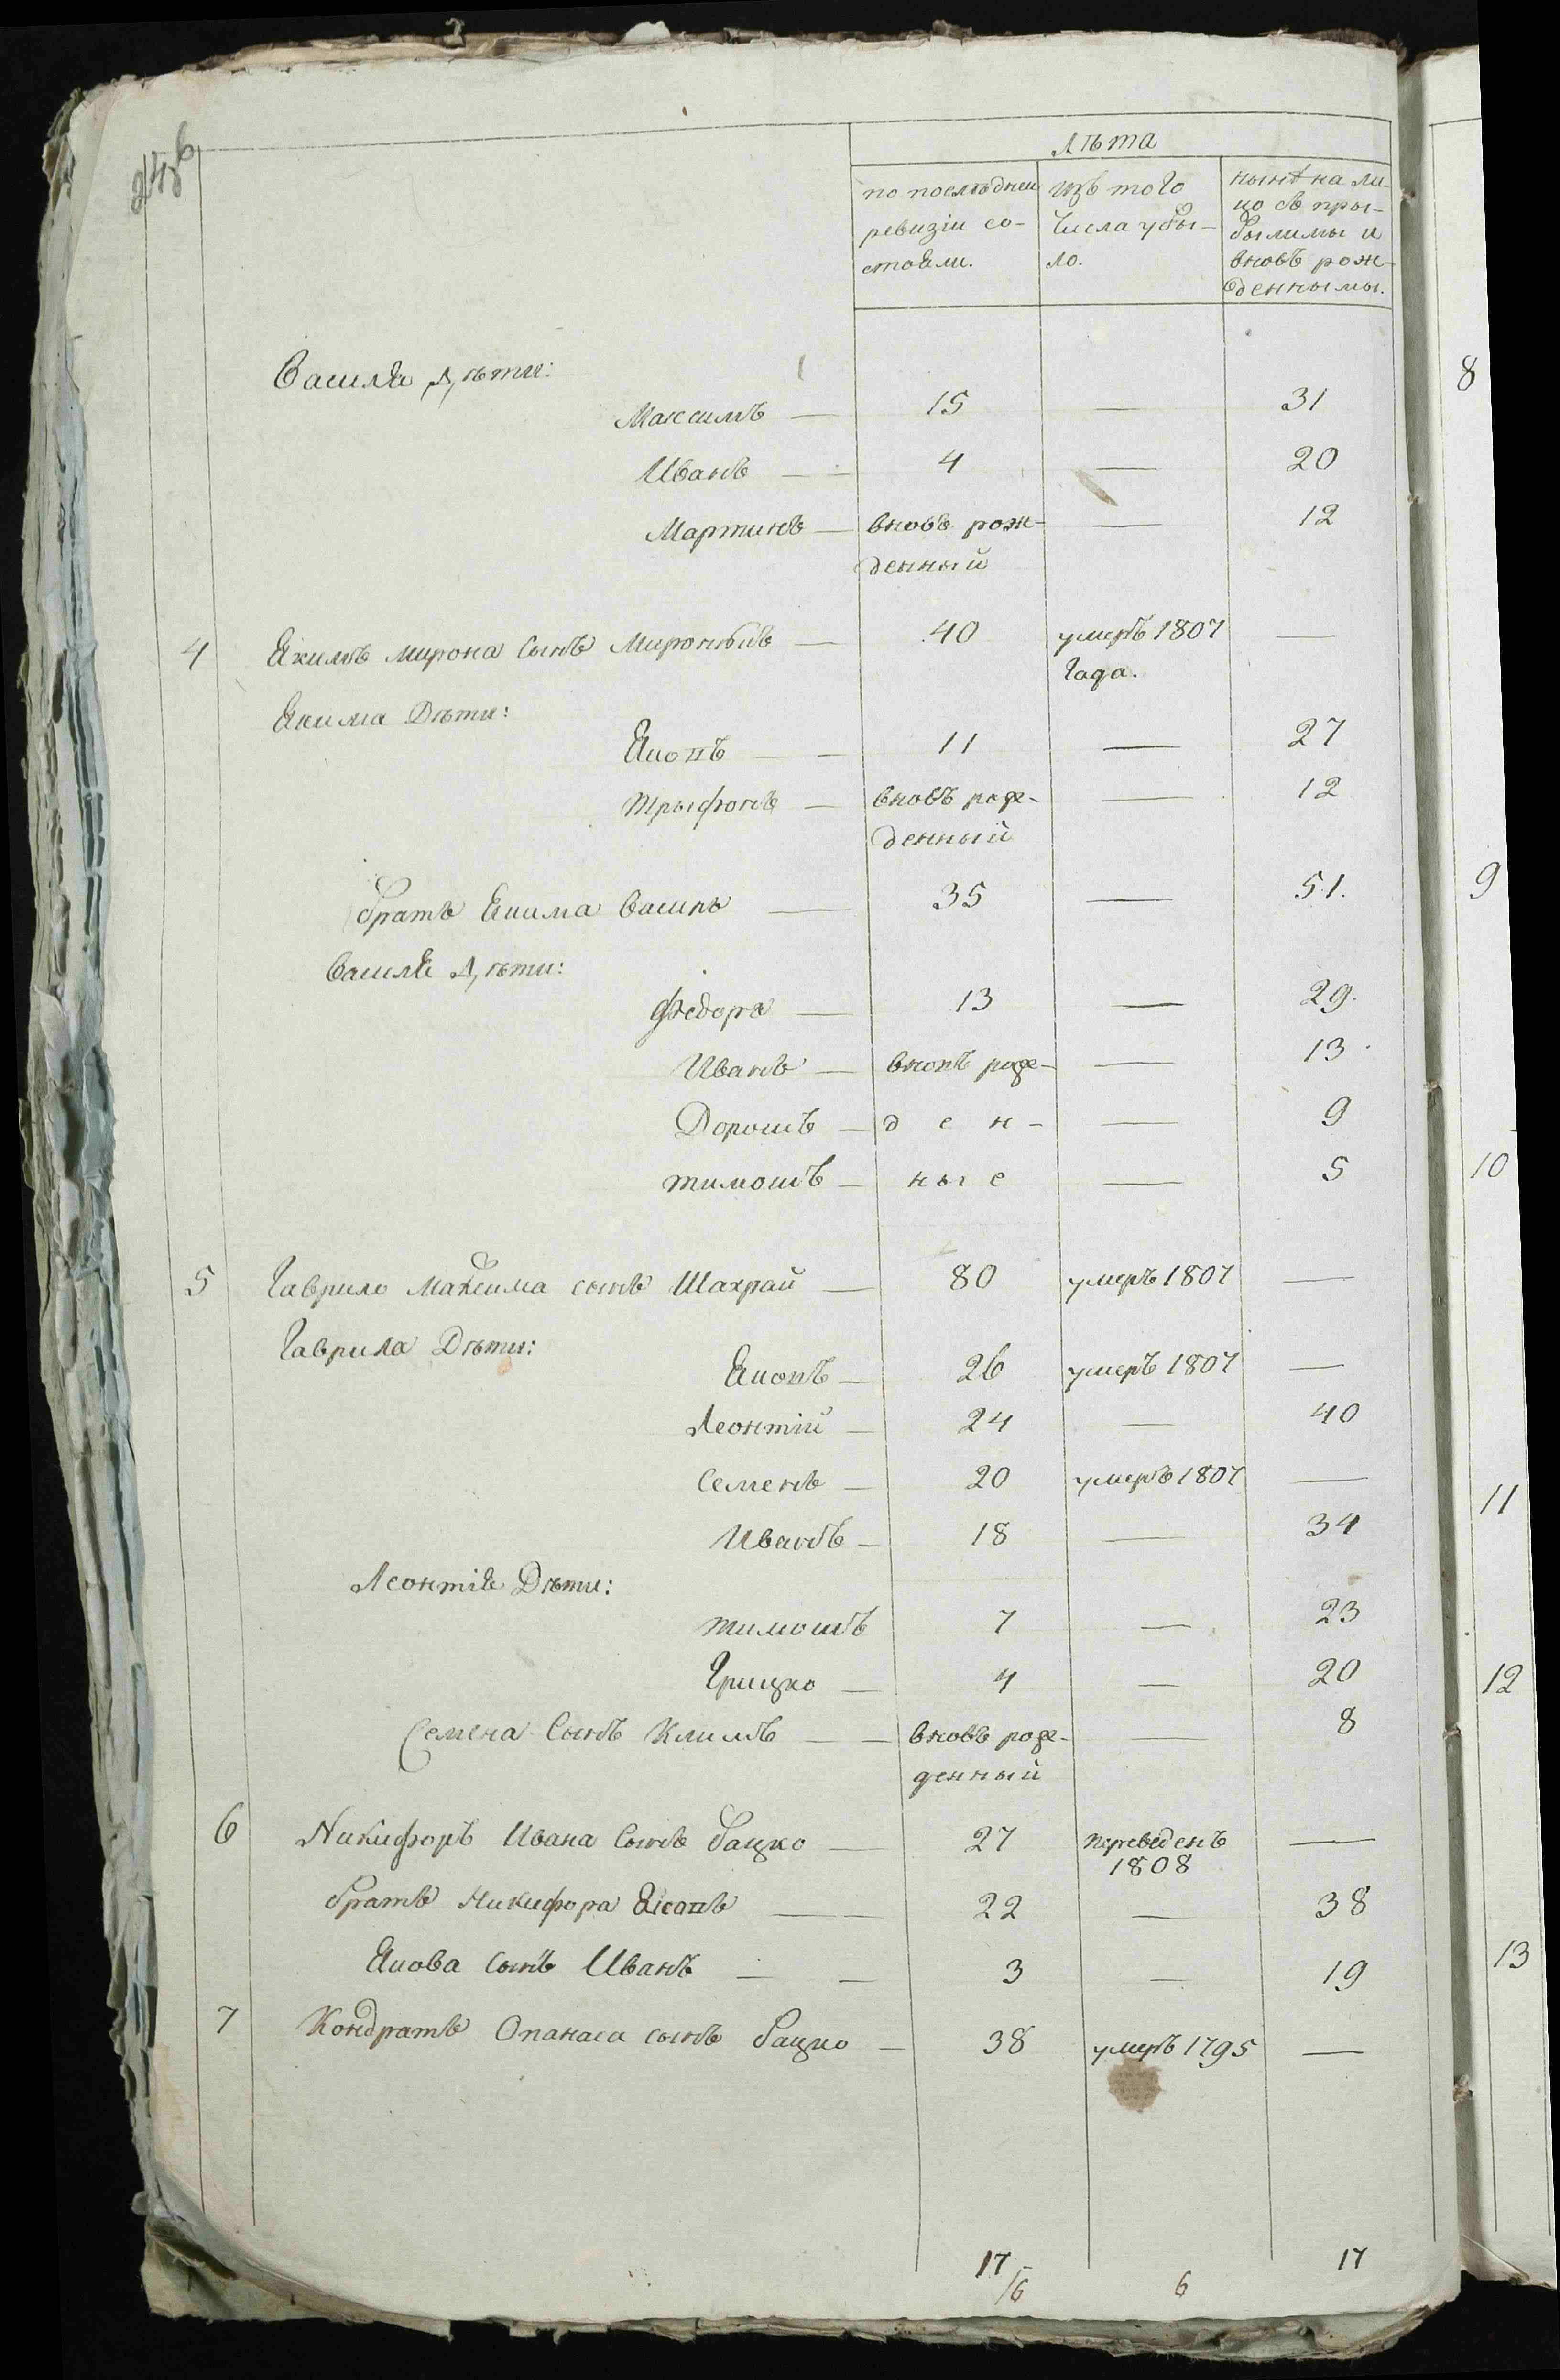 лѣта
по послѣдней ревизіи состояли.
изъ того числа убыло.
нынѣ на лицо съ прыбылымы и вновь рожденнымы.
Василя дѣти:
Максимъ — 15 — 31
Иванъ — 4 — 20
Мартинъ — вновь рож- — 12
денный
4 Якимъ Мирона сынъ — 40 умеръ 1807 —
года.
Якима дѣти:
Яцопъ — 11 — 27
Трыфонъ — вновь рож- — 12
денный
братъ Якима Василь — 35 — 51.
Василя дѣти:
Федоръ — 13 — 29.
Иванъ — вновь рож- — 13.
Дорошъ — д е н - — 9
Тимошъ — ны е — 5
5 Гаврило Максима сынъ Шахрай — 80 умеръ 1807 —
Гаврила дѣти:
Яцопъ — 26 умеръ 1807 —
Леонтій — 24 — 40
Семенъ — 20 умеръ 1807 —
Иванъ — 18 — 34
Леонтія дѣти:
Тимошъ 7 — 23
Грицко — 4 — 20
Семена сынъ Климъ — вновь рож- — 8
денный
6 Никифоръ Ивана сынъ Бацко — 27 переведенъ —
1808
братъ Никифора — 22 — 38
сынъ Иванъ — 3 — 19
7 Кондратъ Опанаса сынъ Бацко — 38 умеръ 1795 —
17 17
/6 6
8
9
10
11
12
13